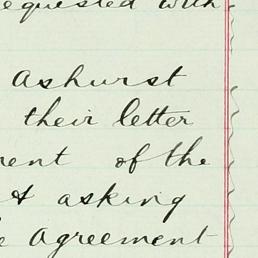 requested with
Ashurst
their letter
ment of the
asking
agreement